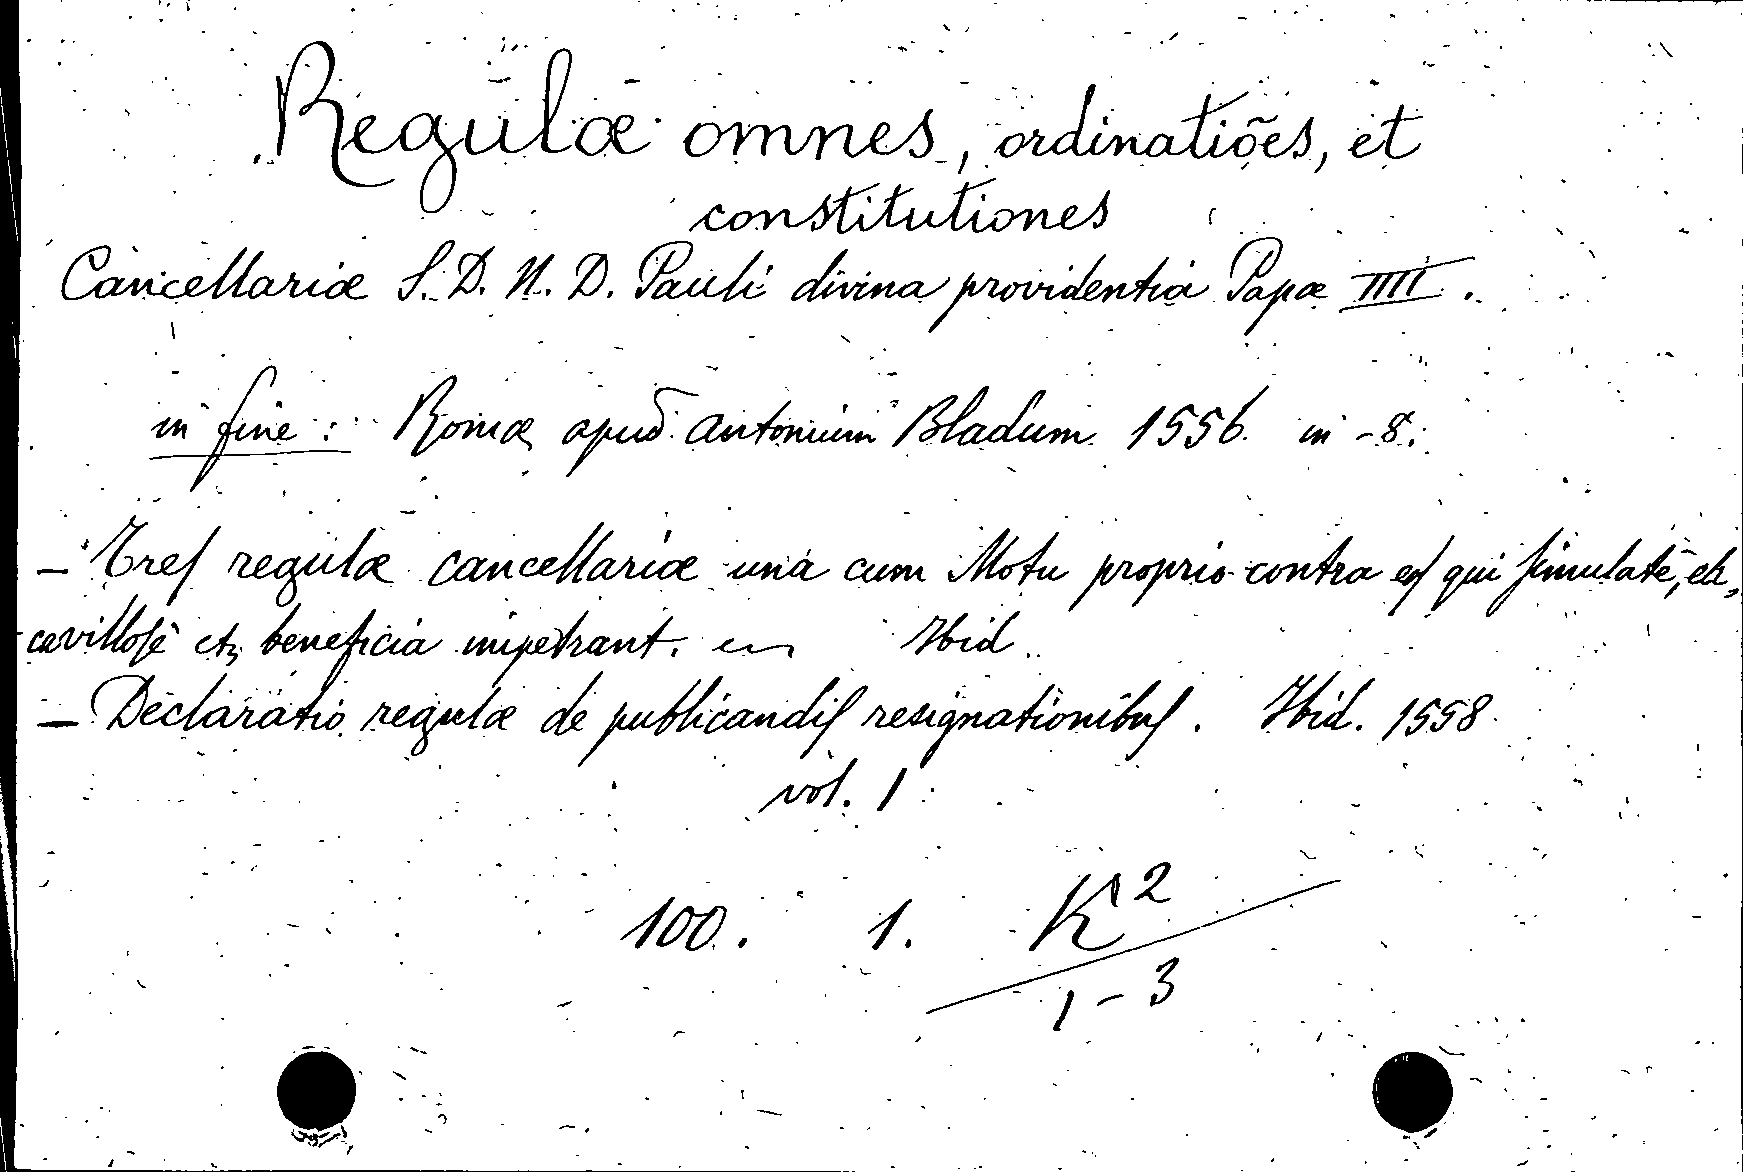 Regulæ omnes, ordinatiões, et
constitutiones
Cancellariæ S. D. N. D. Pauli divina providentia Papæ IIII.
in fine: Romæ apud Antonium Bladum 1556. in-8.
– Tres regulæ cancellariæ unà cum Motu proprio contra eos qui simulatè, et
cavillosè etc beneficia impetrant. Ibid.
– Declaratio regulæ de publicandis resignationibus. Ibid. 1558
vol. 1
100. 1. K²
1-3